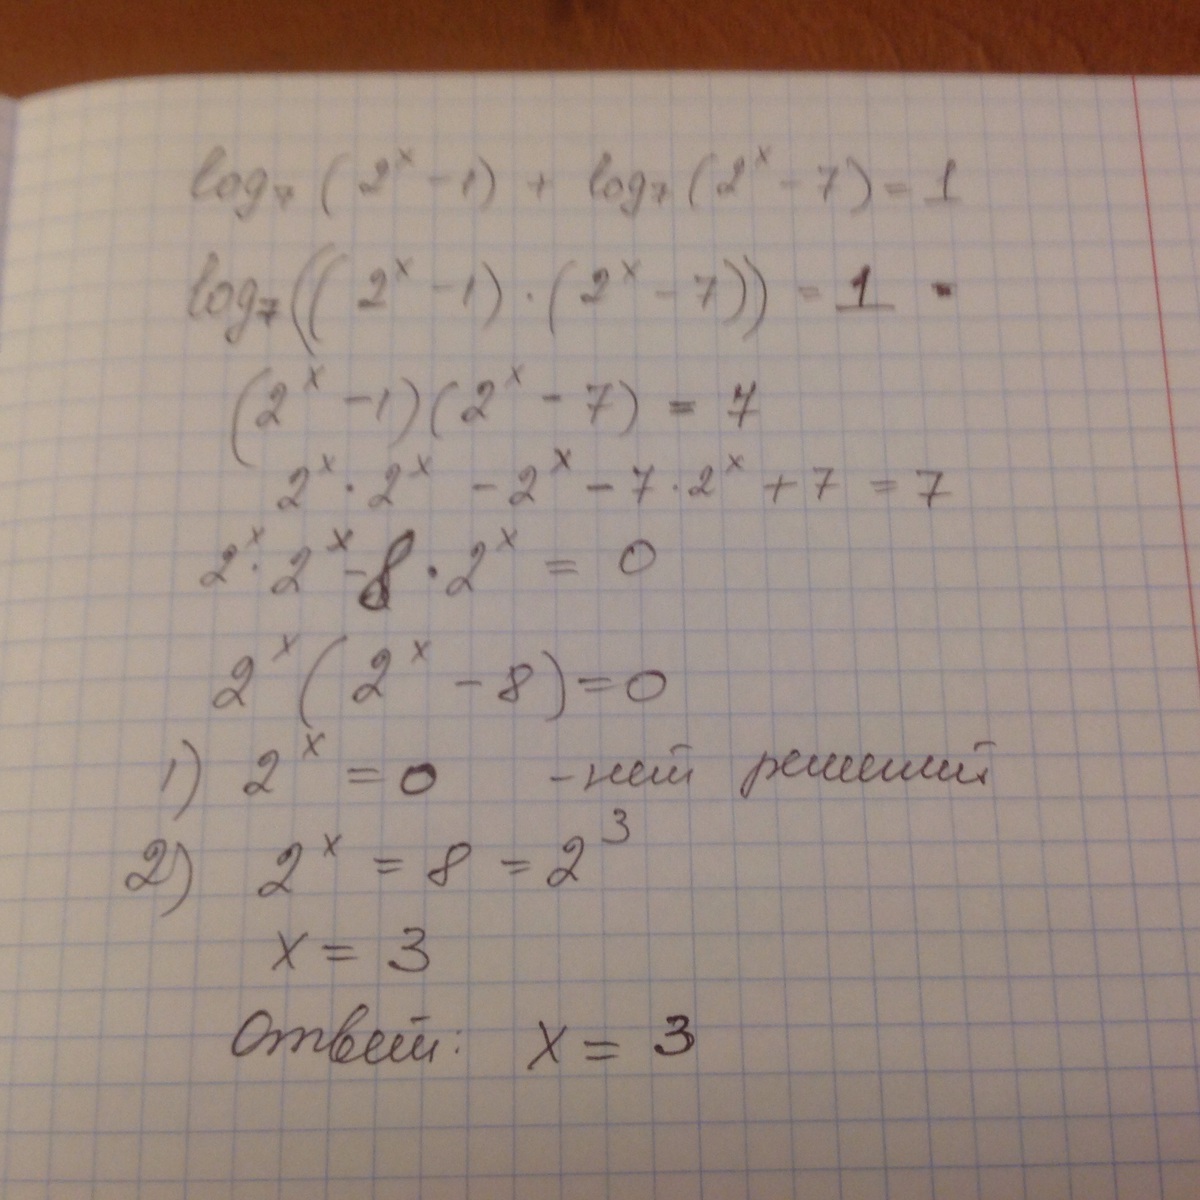 log₇ (2ˣ - 1) + log₇ (2ˣ - 7) = 1
log₇((2ˣ - 1) · (2ˣ - 7)) = 1
(2ˣ - 1)(2ˣ - 7) = 7
2ˣ · 2ˣ - 2ˣ - 7 · 2ˣ + 7 = 7
2ˣ · 2ˣ - 8 · 2ˣ = 0
2ˣ (2ˣ - 8) = 0
1) 2ˣ = 0 - нет решений
2) 2ˣ = 8 = 2³
x = 3
Ответ: x = 3